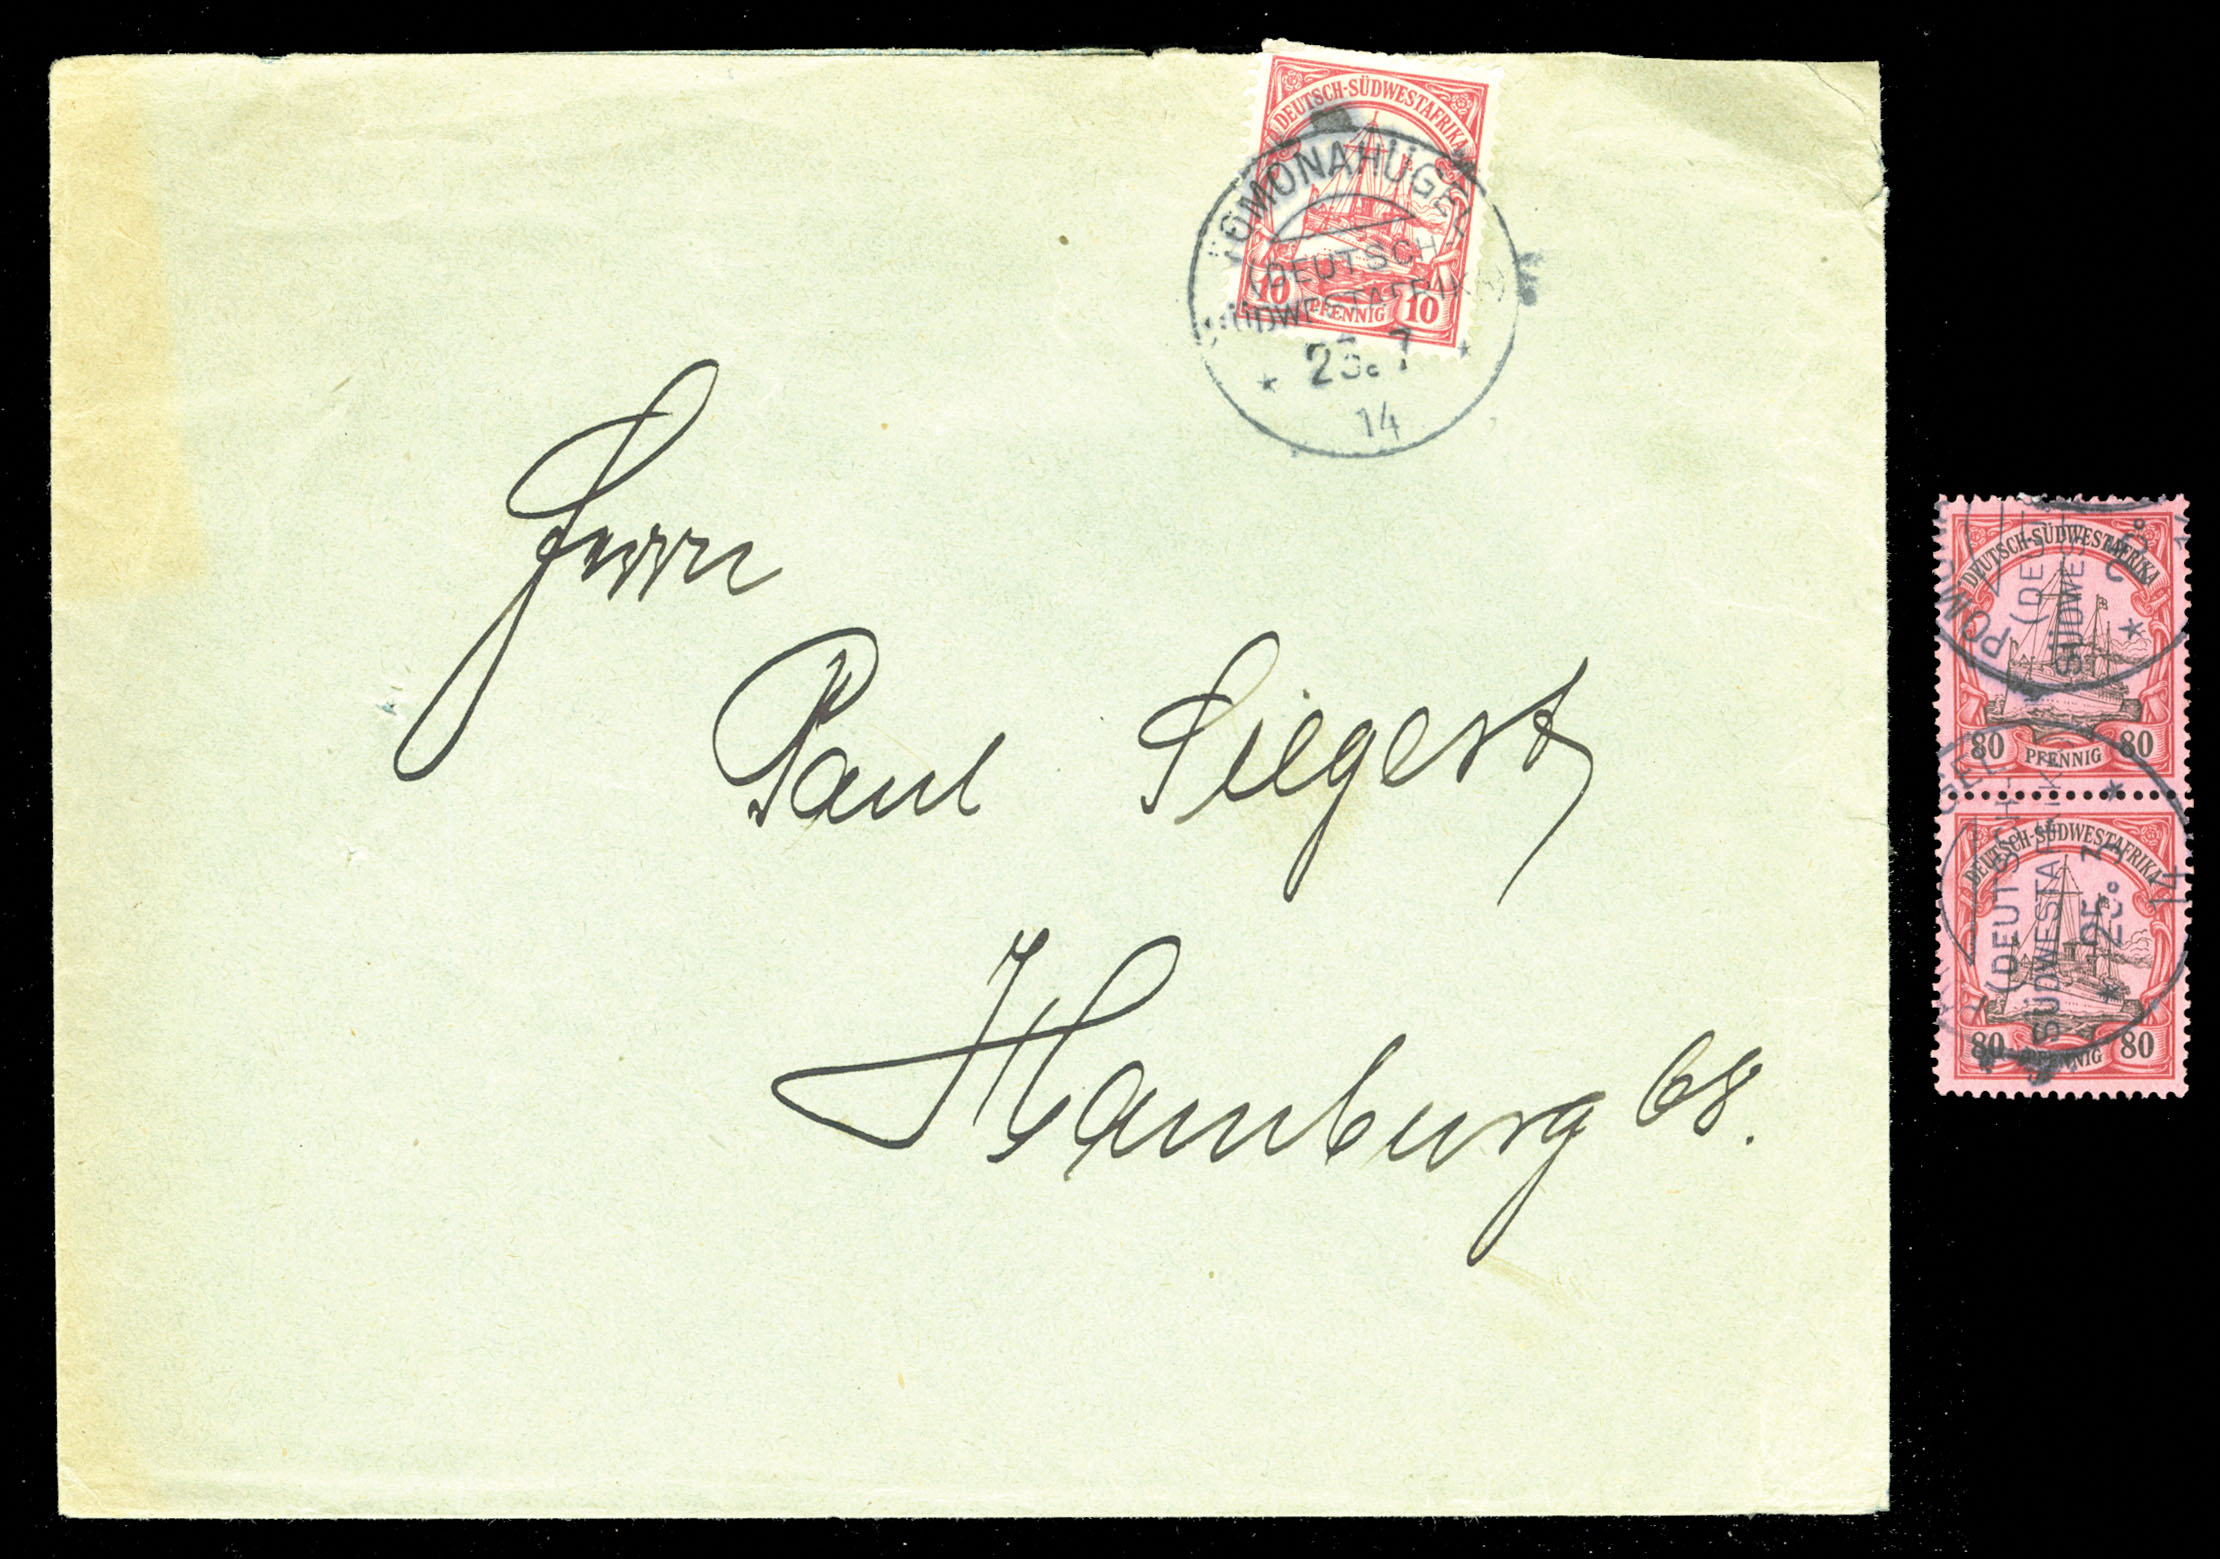 DEUTSCH-SÜDWESTAFRIKA
10 PFENNIG 10
POMONAHÜGEL
(DEUTSCH-
SÜDWESTAFRIKA)
* 25.7 *
14
Herrn
Paul Siegert
Hamburg 68.
DEUTSCH-SÜDWESTAFRIKA
80 PFENNIG 80
POMO
(DEU
SÜDWES
*
DEUTSCH-SÜDWESTAFRIKA
80 PFENNIG 80
GEL
(DEUTSCH-
SÜDWESTAFRIKA
* 25. 7 *
14